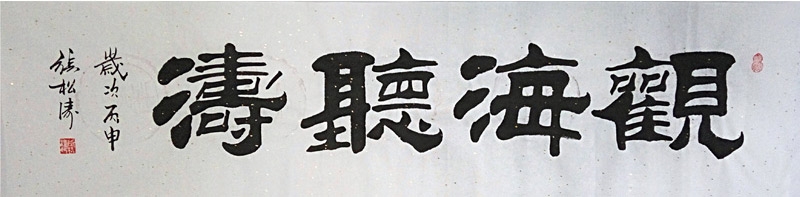 觀海聽濤
歲次丙申
張松濤